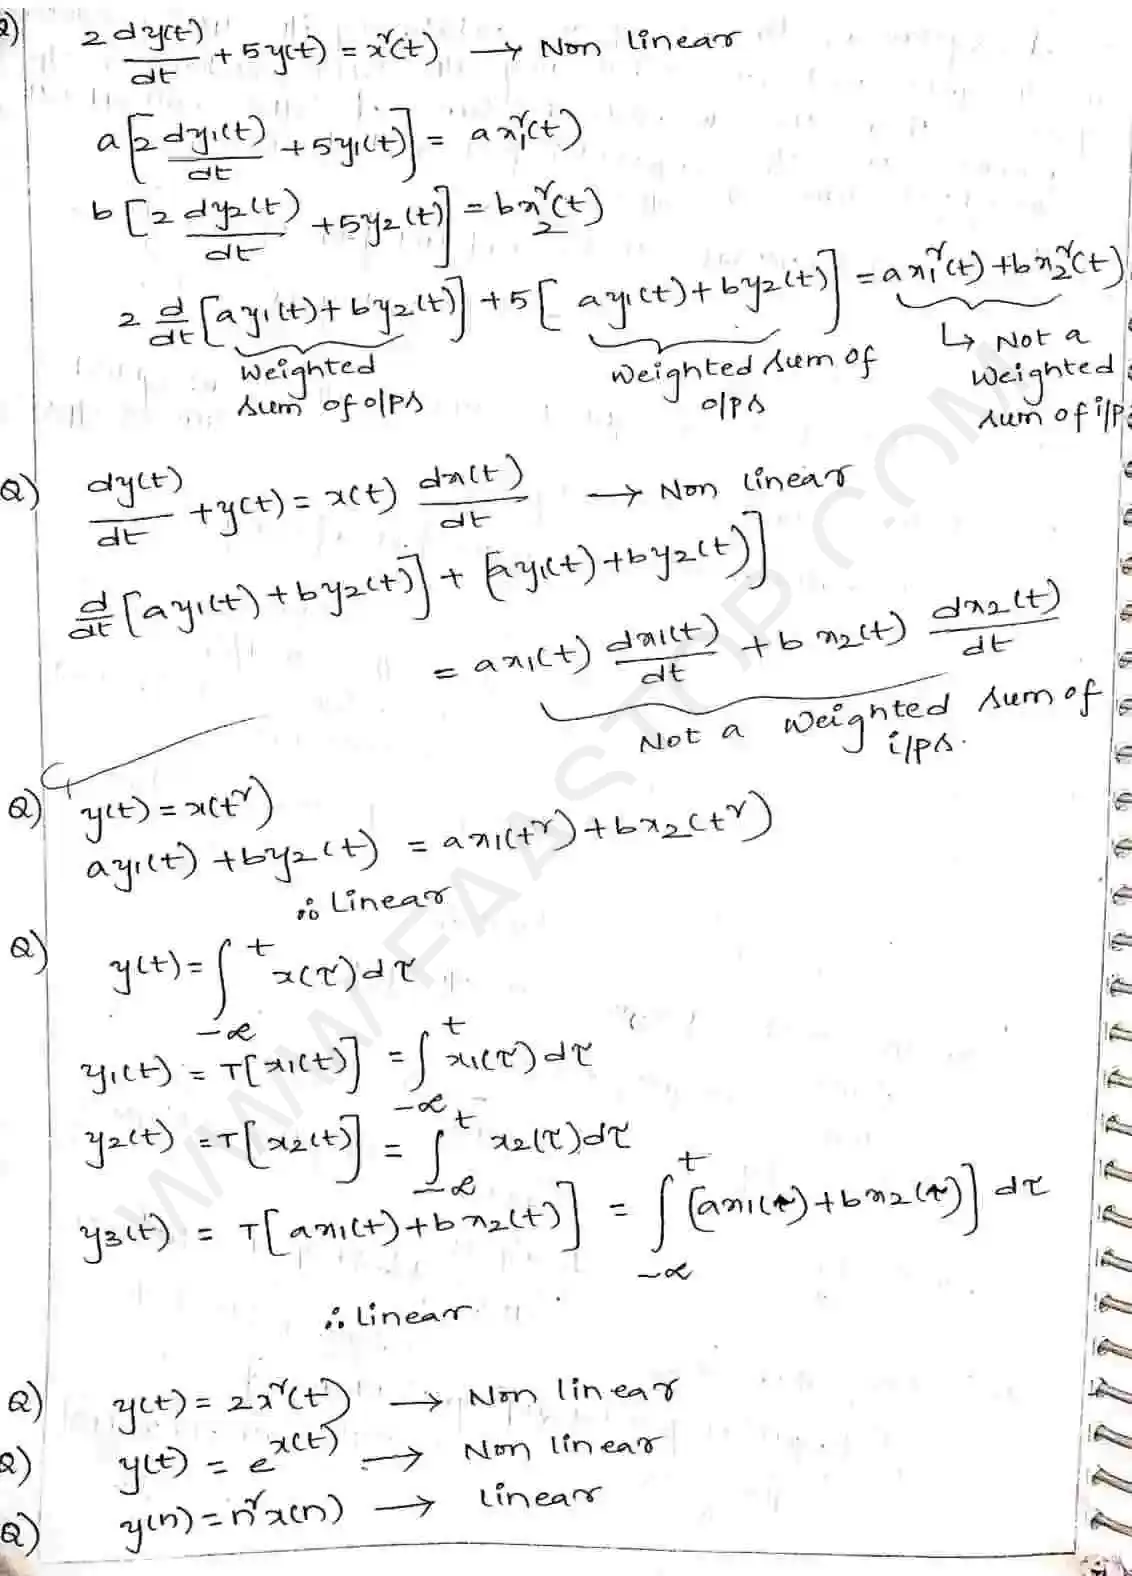 Q) 2 dy(t)/dt + 5y(t) = x²(t) → Non linear
a[2 dy₁(t)/dt + 5y₁(t)] = a x₁²(t)
b[2 dy₂(t)/dt + 5y₂(t)] = b x₂²(t)
2 d/dt [ay₁(t) + by₂(t)] + 5[ay₁(t) + by₂(t)] = a x₁²(t) + b x₂²(t)
Weighted sum of o/ps
Weighted sum of o/ps
↳ Not a Weighted sum of i/ps
Q) dy(t)/dt + y(t) = x(t) dx(t)/dt → Non linear
d/dt [ay₁(t) + by₂(t)] + [ay₁(t) + by₂(t)]
= a x₁(t) dx₁(t)/dt + b x₂(t) dx₂(t)/dt
Not a Weighted sum of i/ps.
Q) y(t) = x(t²)
ay₁(t) + by₂(t) = a x₁(t²) + b x₂(t²)
∴ Linear
Q) y(t) = ∫_{-∞}^{t} x(τ) dτ
y₁(t) = T[x₁(t)] = ∫_{-∞}^{t} x₁(τ) dτ
y₂(t) = T[x₂(t)] = ∫_{-∞}^{t} x₂(τ) dτ
y₃(t) = T[a x₁(t) + b x₂(t)] = ∫_{-∞}^{t} [a x₁(τ) + b x₂(τ)] dτ
∴ Linear
Q) y(t) = 2x²(t) → Non linear
Q) y(t) = e^{x(t)} → Non linear
Q) y(n) = n²x(n) → Linear
WWW.FAASTOP.COM